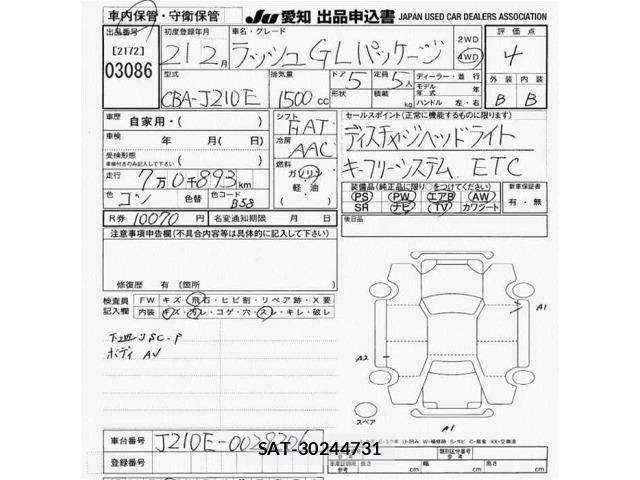 車内保管・守衛保管 Ju 愛知 出品申込書 JAPAN USED CAR DEALERS ASSOCIATION
出品番号 初度登録年月 車名・グレード 評価点
[2172] 03086 21 2月 ラッシュ GLパッケージ 2WD 4WD 4
型式 排気量 ドア 定員 ディーラー・並行 外装 内装
CBA-J210E 1500cc 5 5人 モデル年式 年
形状 積載 kg ハンドル 左・右 B B
車歴 自家用・( ) シフト FAT セールスポイント(正常に機能するものに限ります)
車検 年 月(日) 冷房 AAC ディスチャジヘッドライト
受検形態 車検付きのみ記入して下さい 燃料 キーフリーシステム. ETC
走行 7万0千893km ガソリン 軽・油 装備品(純正品に限り○をつけてください) 新車保証書
色 コン 色替 色コード B53 (PS) (PW) (エアB) (AW) 有・無
SR (ナビ) (TV) カワシート
R券 10070円 名変通知期限 月 日 後日品
注意事項申告欄(不具合内容等は具体的に記入して下さい)
修復歴 有 (箇所
検査員記入欄 FW キズ・飛石・ヒビ割・リペア跡・X要
内装 キズ・汚レ・コゲ・穴・スレ・キレ・破レ
A1
下廻リSC.P
ボディ AV
A2
スペア
A1
車台番号 J210E-0028206
SAT-30244731
登録番号
類別区分番号
車庫証明用参考 長さ cm 幅 cm 高さ cm